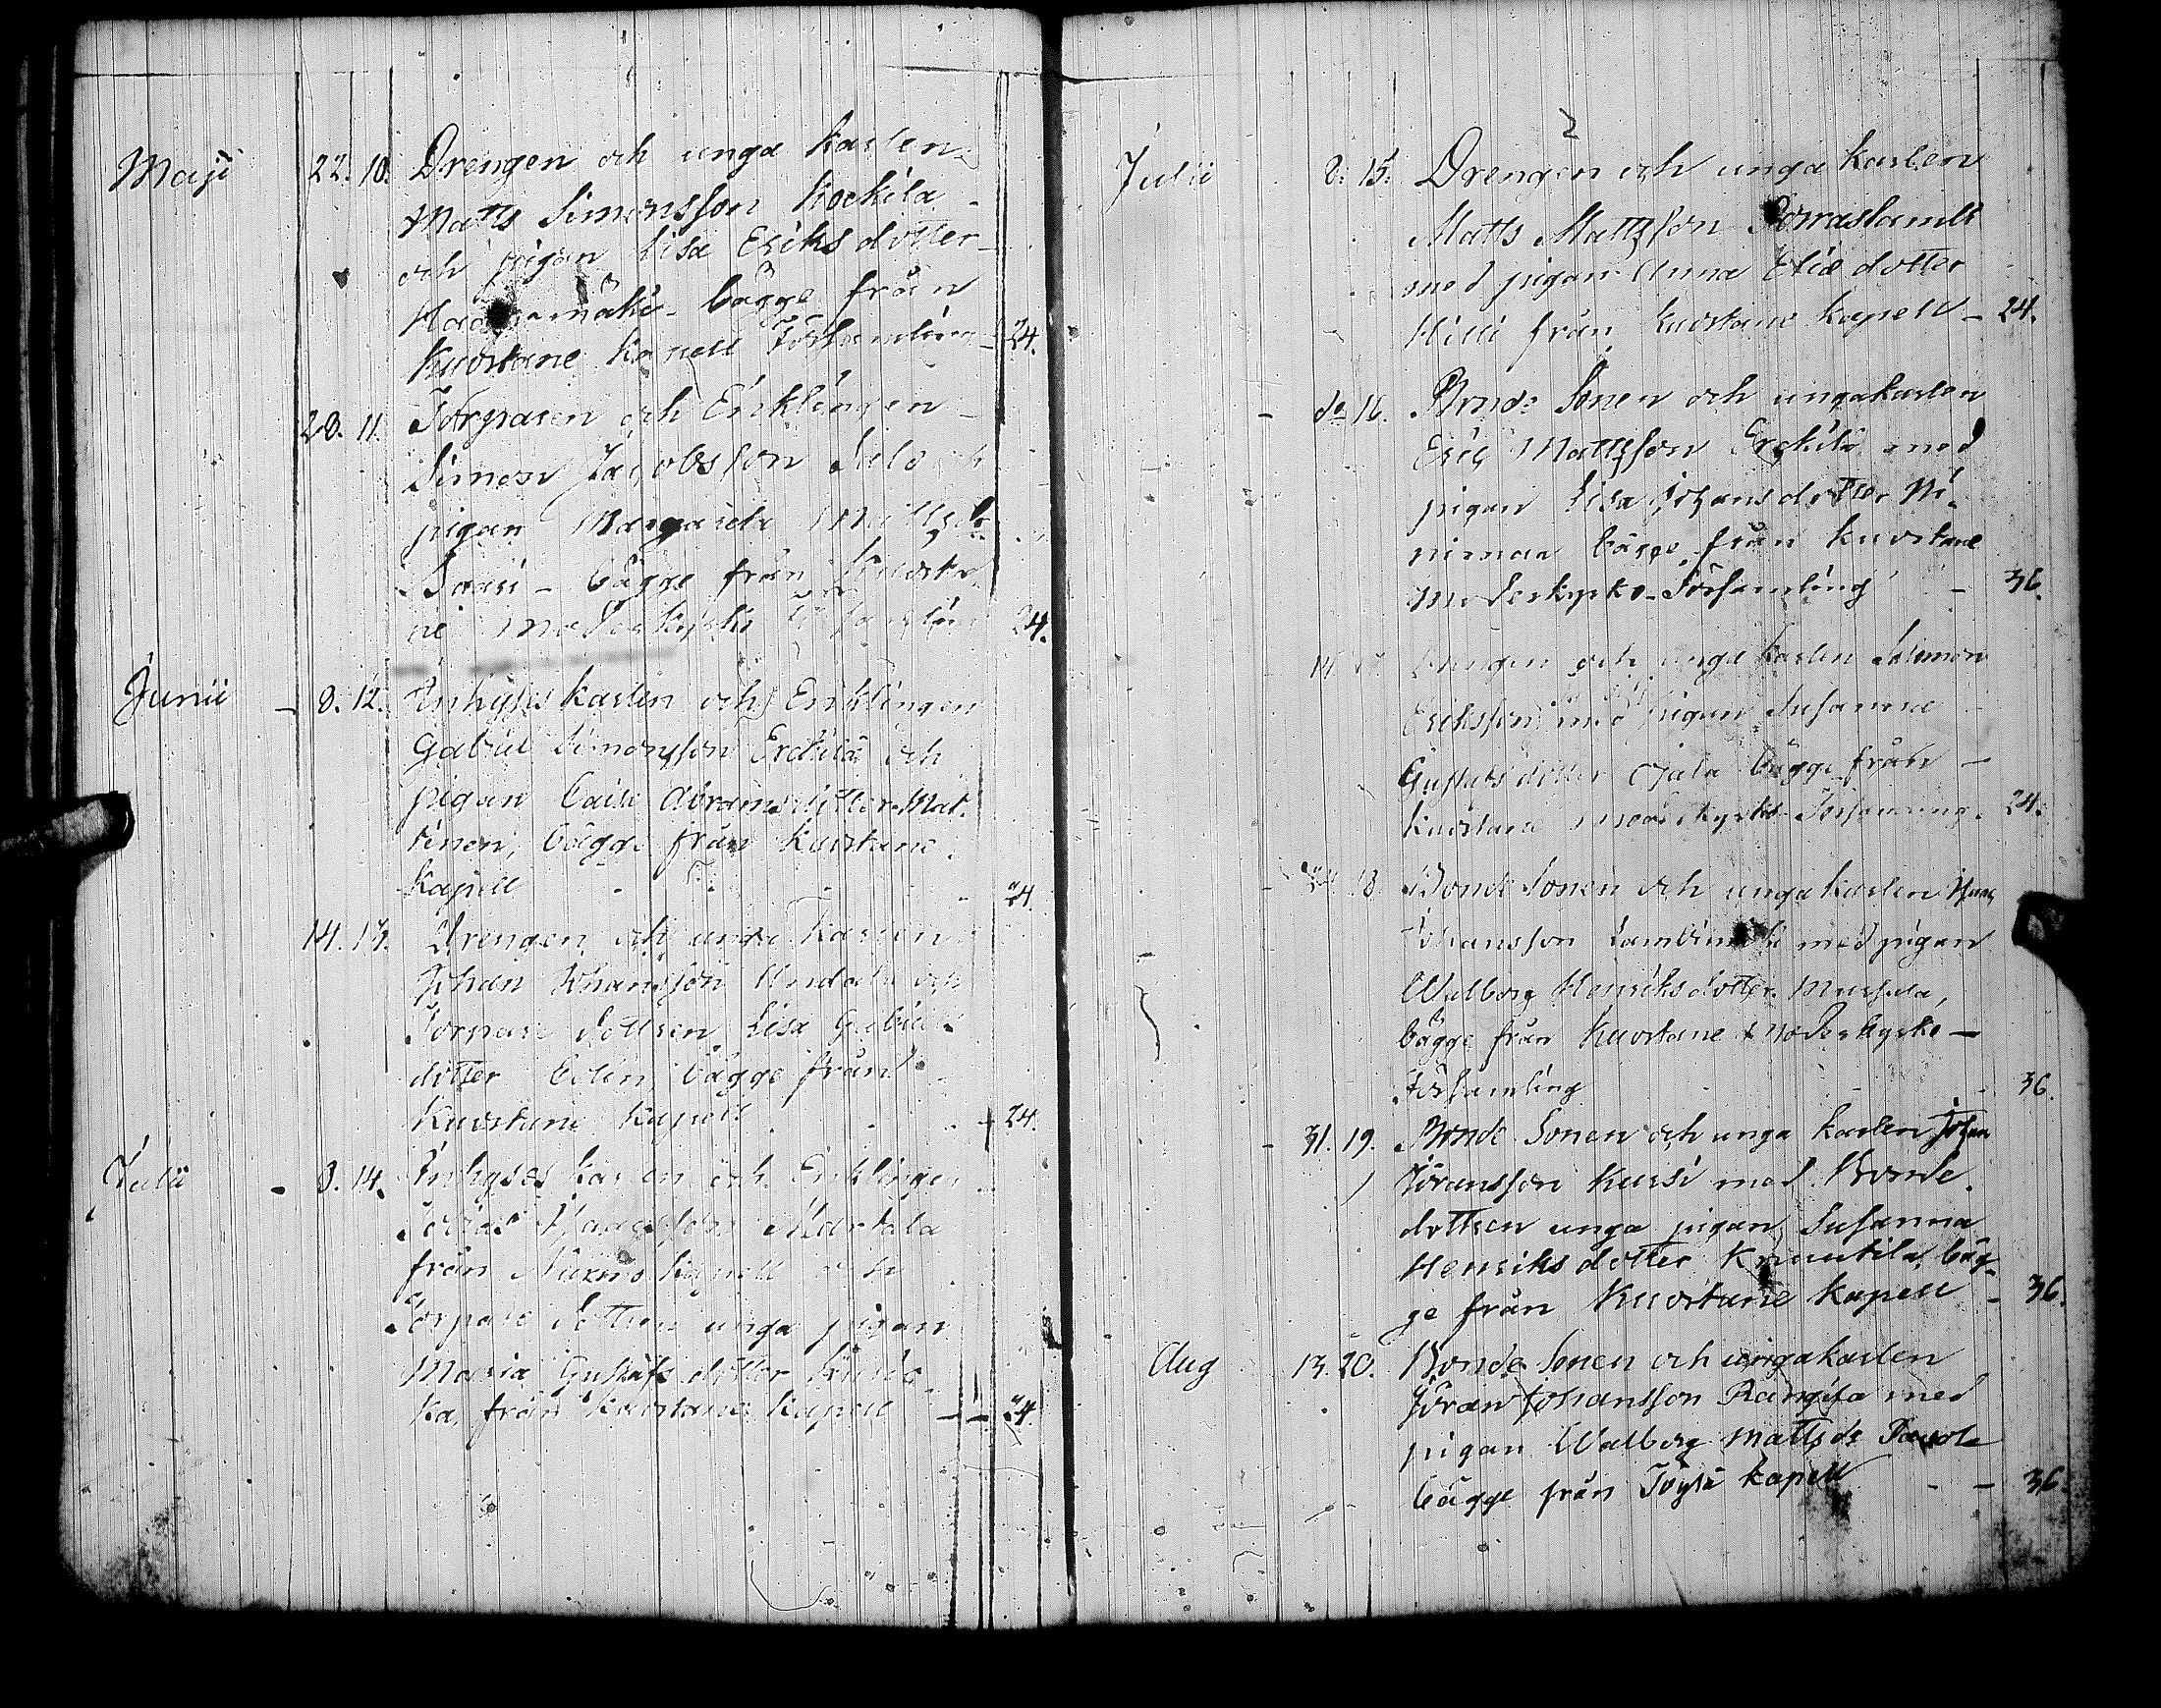 Maji 22. 10. Drengen och unga karlen
Matts Simonsson Kockila
och pigan Lisa Eriksdotter
bägge från
Kuortane Kapell Församling 24.
28. 11. Torparen och Enklingen
Simon Jacobsson
pigan Margareta Mattsdr
bägge från Kuorta
ne Moderkyrko Församling 24.
Junii 8. 12. Inhyses karlen och Enklingen
Gabriel Simonsson Erckilä och
pigan Caisa Abramsdotter Mat-
tinen, bägge från Kuortane
Kapell 24.
14. 13. Drengen och unga karlen
Johan Johansson och
Torpare Dottren Lisa Gabriels
dotter bägge från
Kuortane Kapell 24.
Julii 8. 14. Inhyses karlen och Enklingen
Martala
från Kapell och
Torpare Dottren unga pigan
Maria Gustafsdotter
ka, från Kuortane Kapell 24.
2
Julii 8. 15. Drengen och unga karlen
Matts Mattsson Porraslambi
med pigan Anna Eliædotter
Hilli från Kuortane Kapell 24.
do 16. Bonde Sonen och ungakarlen
Eric Mattsson Erckilä med
pigan Lisa Johansdotter Ni-
nimaa bägge från Kuortane
Moderkyrko Församling 36.
14. 17. Drengen och unga karlen Salomon
Eriksson med pigan Susanna
Gustafsdotter Ojala bägge från
Kuortane Moderkyrko Församling 24.
18. Bonde Sonen och unga karlen
Johansson med pigan
Walborg Henriksdotter
bägge från Kuortane Moderkyrko
Församling 36.
31. 19. Bonde Sonen och unga karlen Johan
Jöransson Kuusi med Bonde
dottren unga pigan Susanna
Henriksdotter Knuutila, bäg-
ge från Kuortane Kapell 36.
Aug 13. 20. Bonde Sonen och ungakarlen
Jöran Johansson Rangita med
pigan Walborg Mattsdr Pavola
bägge från Töysä Kapell 36.